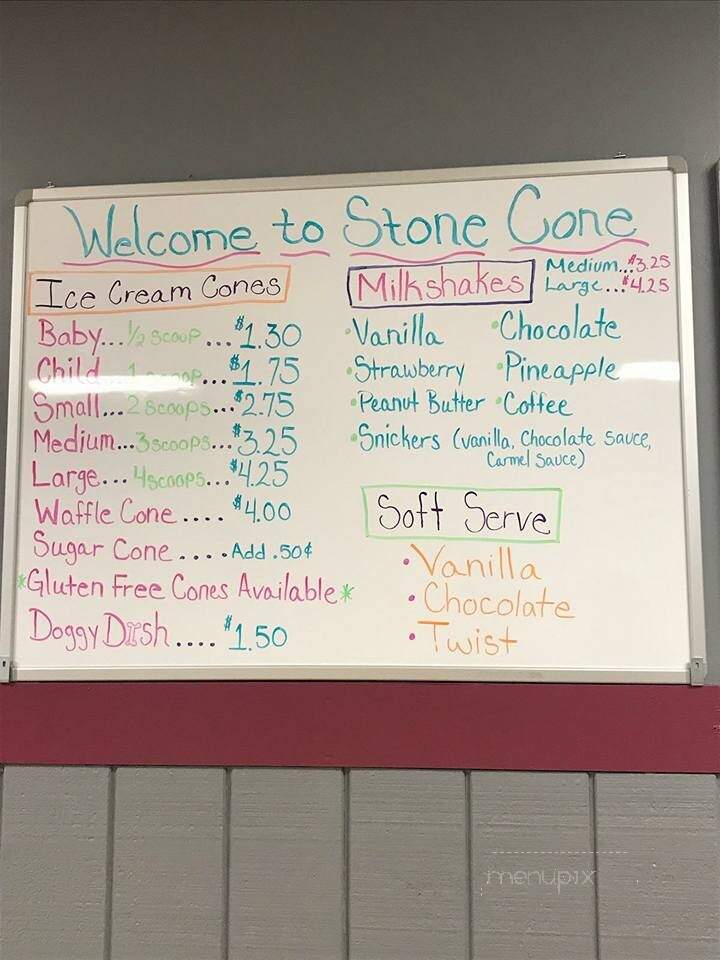 Welcome to Stone Cone
Ice Cream Cones
Baby...½ Scoop...$1.30
Child...1 Scoop...$1.75
Small...2 Scoops...$2.75
Medium...3 scoops...$3.25
Large...4 scoops...$4.25
Waffle Cone....$4.00
Sugar Cone....Add .50¢
*Gluten Free Cones Available*
Doggy Dish....$1.50
Milkshakes
Medium...$3.25
Large...$4.25
•Vanilla •Chocolate
•Strawberry •Pineapple
•Peanut Butter •Coffee
•Snickers (vanilla, Chocolate Sauce,
Carmel Sauce)
Soft Serve
•Vanilla
•Chocolate
•Twist
menupix